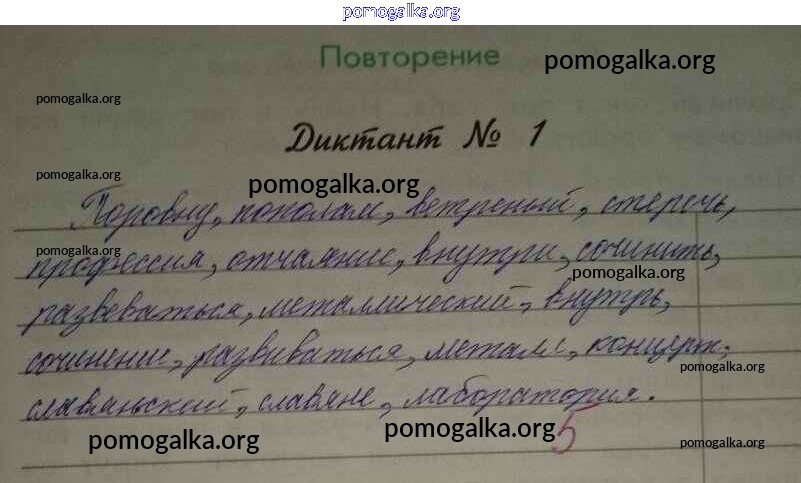 pomogalka.org
Повторение
pomogalka.org
pomogalka.org
Диктант № 1
pomogalka.org
pomogalka.org
Поровну, пополам, ветреный, стеречь,
pomogalka.org
профессия, отчаяние, внутри, сочинить,
pomogalka.org
развеваться, металлический, внутрь,
сочинение, развиваться, металл, концерт,
pomogalka.org
славянский, славяне, лаборатория.
5
pomogalka.org
pomogalka.org
pomogalka.org